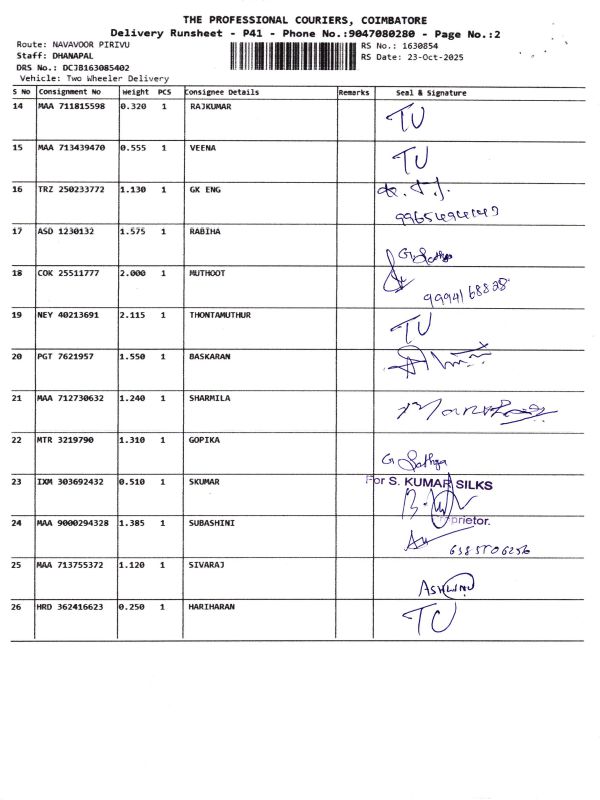 THE PROFESSIONAL COURIERS, COIMBATORE
Delivery Runsheet - P41 - Phone No.:9047080280 - Page No.:2
Route: NAVAVOOR PIRIVU RS No.: 1630854
Staff: DHANAPAL RS Date: 23-Oct-2025
DRS No.: DCJB163085402
Vehicle: Two Wheeler Delivery
S No Consignment No Weight PCS Consignee Details Remarks Seal & Signature
14 MAA 711815598 0.320 1 RAJKUMAR TU
15 MAA 713439470 0.555 1 VEENA TU
16 TRZ 250233772 1.130 1 GK ENG
17 ASD 1230132 1.575 1 RABIHA G. Sathya
18 COK 25511777 2.000 1 MUTHOOT
9994168828
19 NEY 40213691 2.115 1 THONTAMUTHUR TU
20 PGT 7621957 1.550 1 BASKARAN
21 MAA 712730632 1.240 1 SHARMILA
22 MTR 3219790 1.310 1 GOPIKA
G Sathya
23 IXM 303692432 0.510 1 SKUMAR For S. KUMAR SILKS
prietor.
24 MAA 9000294328 1.385 1 SUBASHINI
6385706256
25 MAA 713755372 1.120 1 SIVARAJ
ASHWINI
26 HRD 362416623 0.250 1 HARIHARAN TU